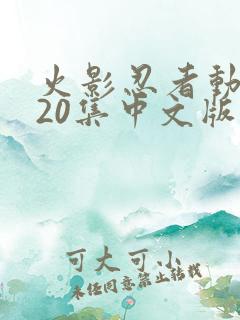 火影忍者動
20集中文版
可大可小
未经同意禁止转载